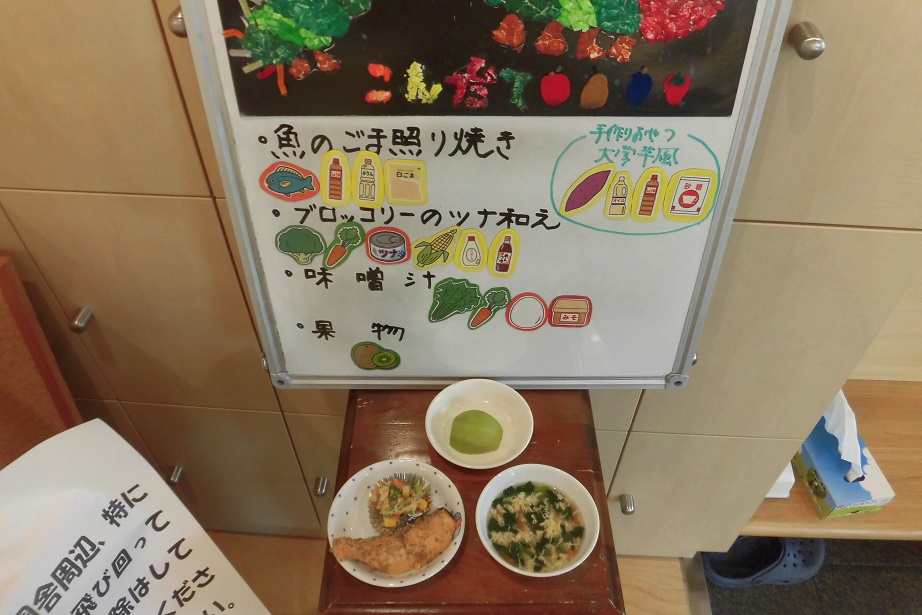 こんだて
・魚のごま照り焼き
白ごま
手作りおやつ
大学芋風
砂糖
・ブロッコリーのツナ和え
ツナ
・味噌汁
みそ
・果物
舎周辺、特に
飛び回って
除はして
ください。